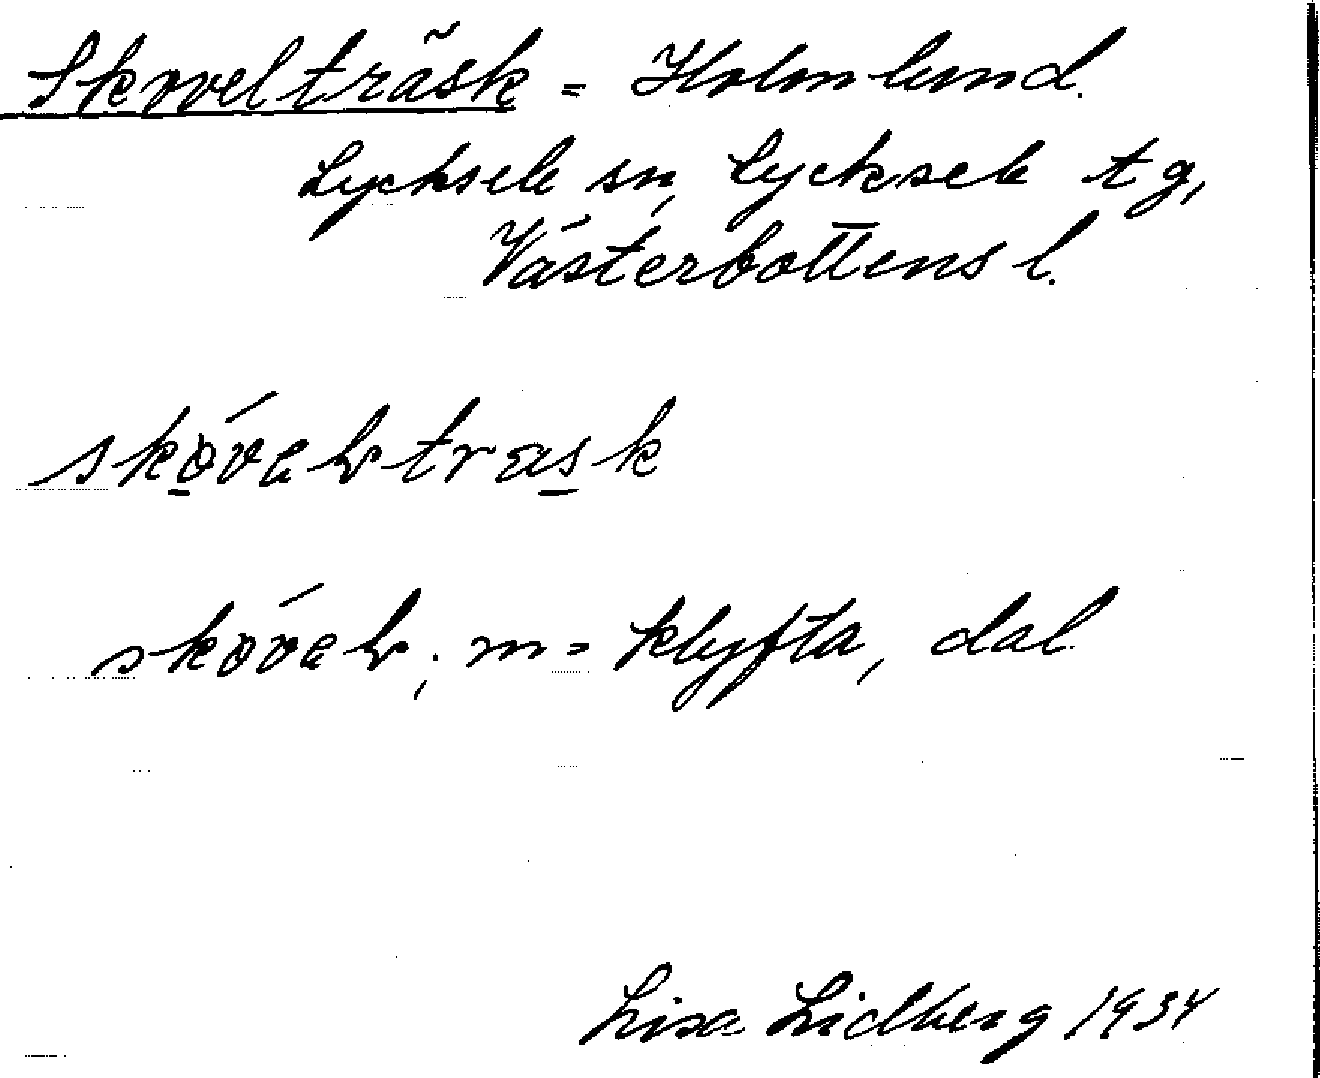 Skovelträsk = Holmlund.
Lycksele sn, Lycksele tg,
Västerbottens l.
skövəltrask
skövəl, m = klyfta, dal
Lisa Lidberg 1934